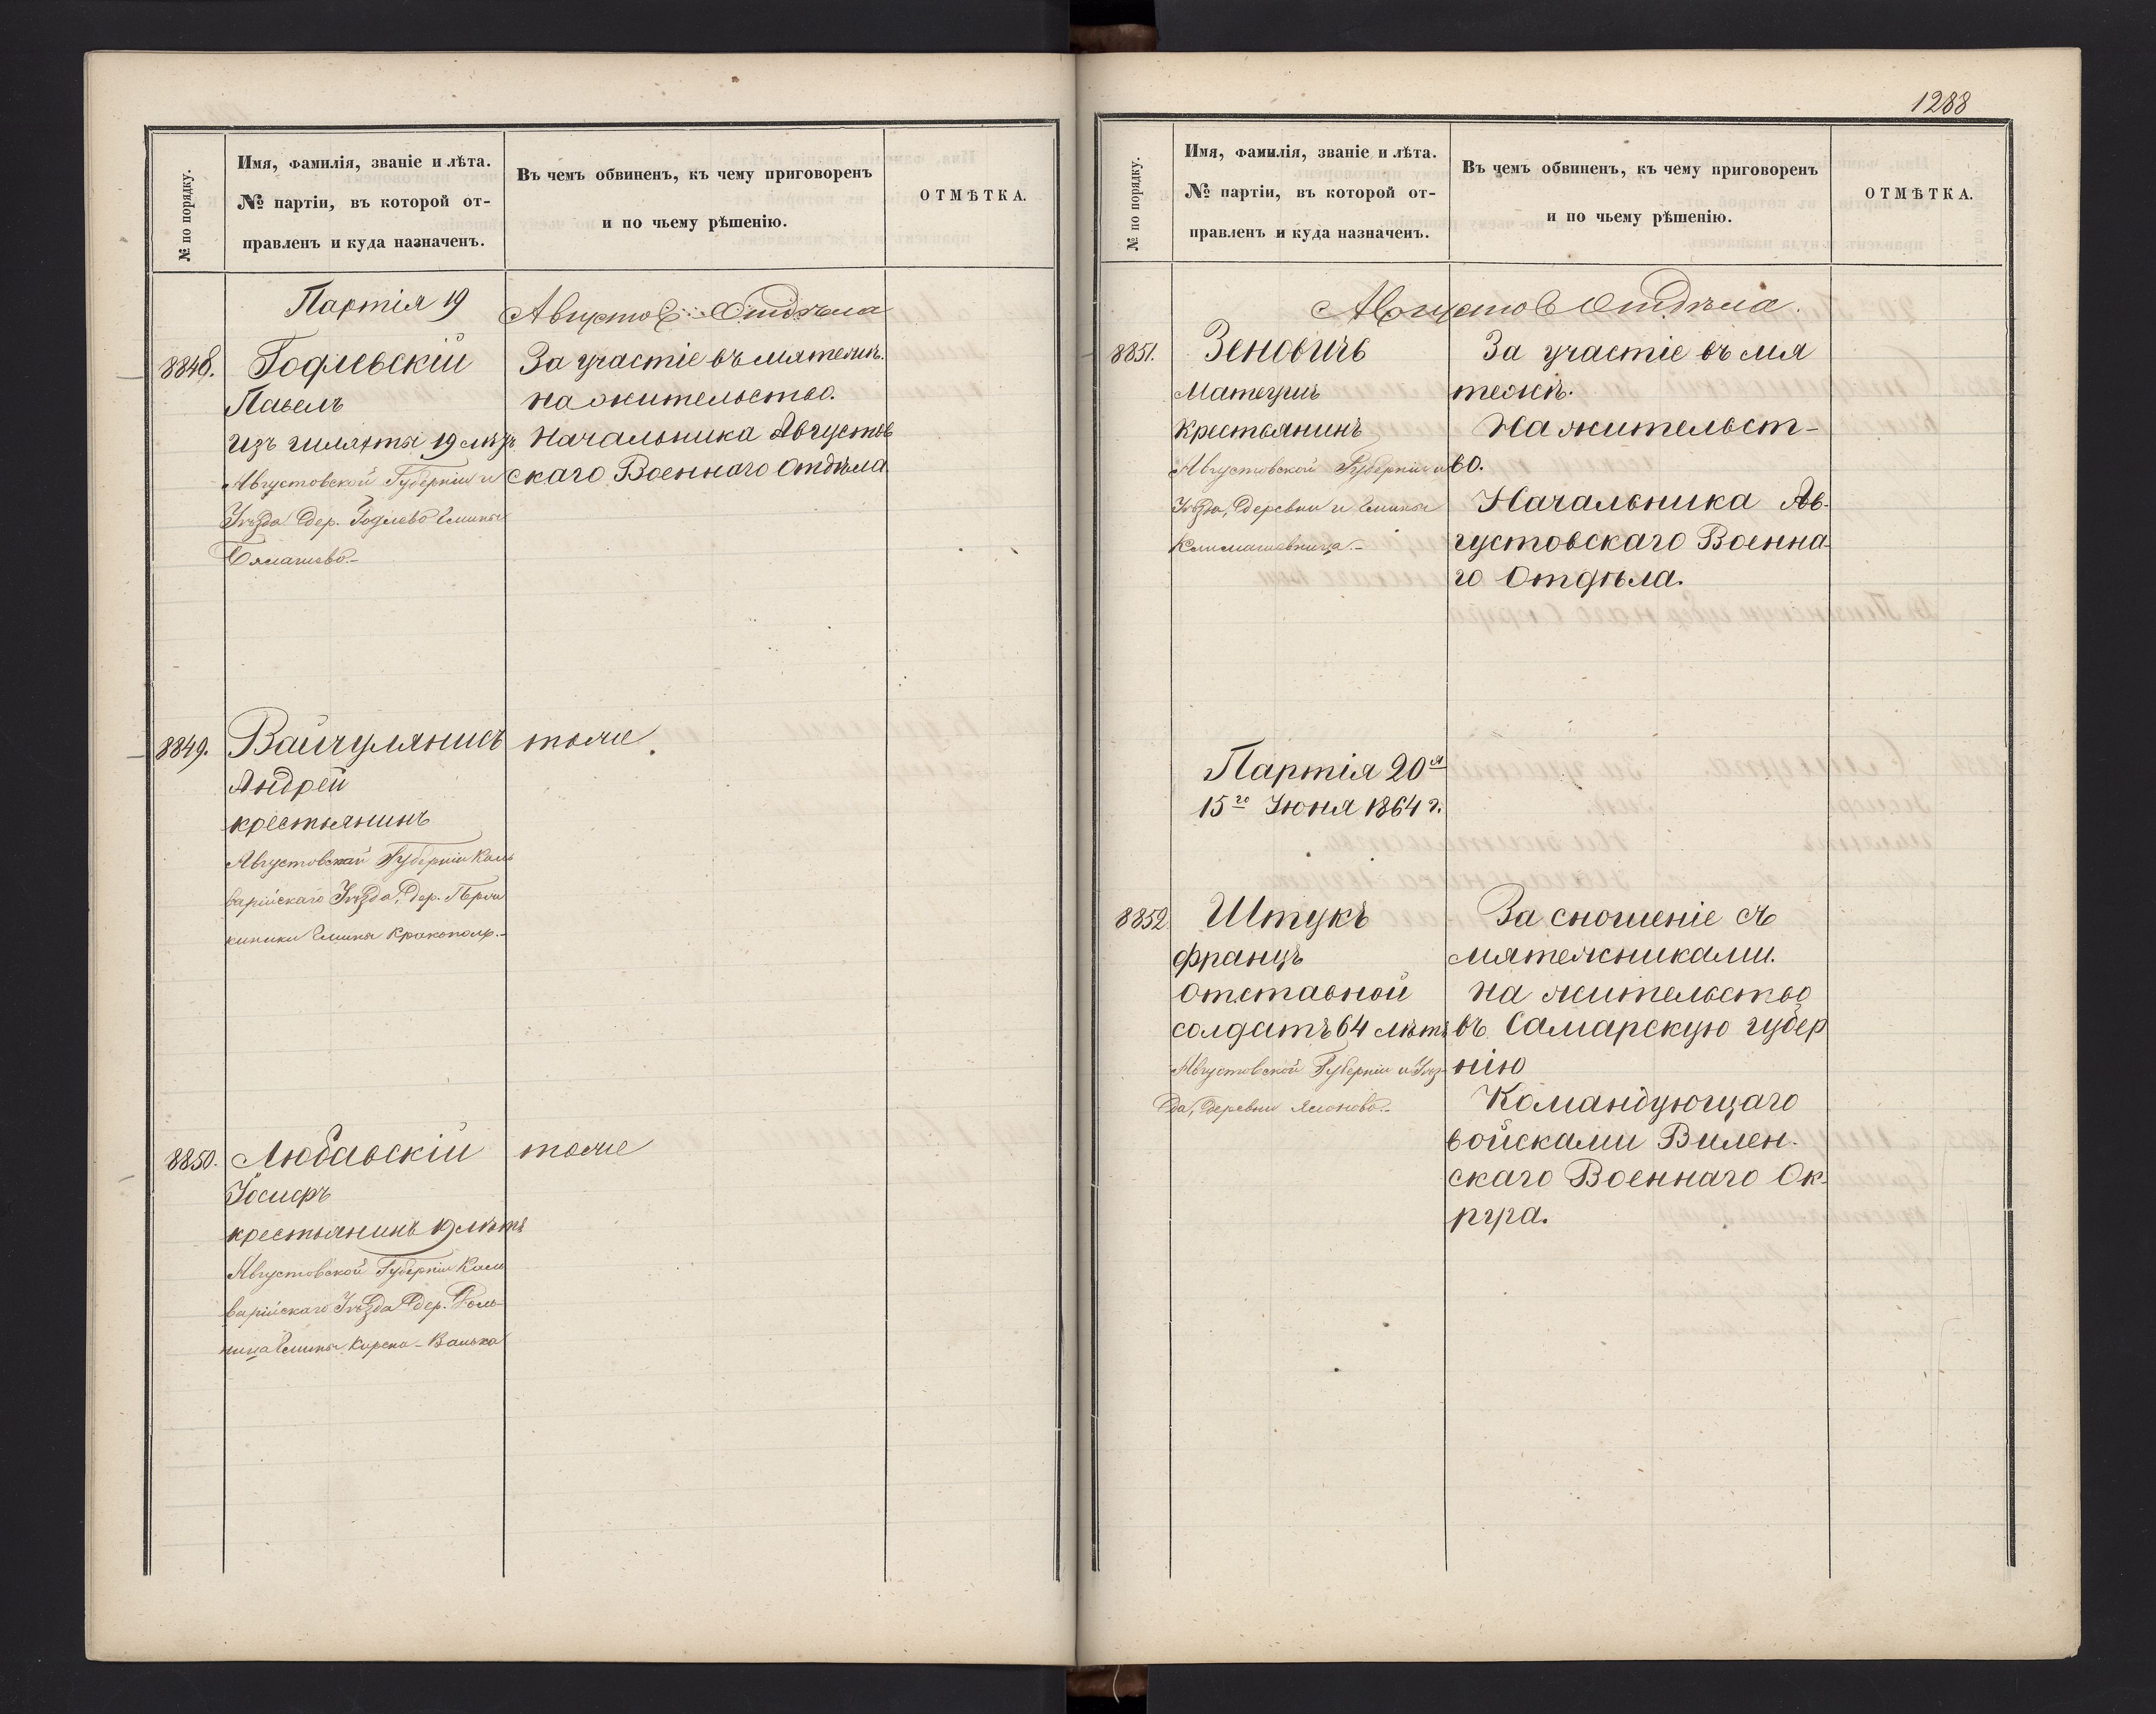 № по порядку.
Имя, фамилія, званіе и лѣта.
№ партіи, въ которой от-
правленъ и куда назначенъ.
Въ чемъ обвиненъ, къ чему приговоренъ
и по чьему рѣшенію.
ОТМѢТКА.
Партія 19
Августов: Отдѣла
8848.
Годлевскій
Павелъ
изъ шляхты 19 лѣтъ
Августовской Губерніи и
Уѣзда дер. Годлево Гмины
За участіе въ мятежѣ.
на жительство.
Начальника Августов
скаго Военнаго Отдѣла
8849.
Вайчулянисъ
Андрей
крестьянинъ
Августовской Губерніи Каль
варійскаго Уѣзда, дер.
Гмины Краконол.-
тоже
8850.
Любавскій
Іосифъ
крестьянинъ 19 лѣтъ
Августовской Губерніи Каль
варійскаго Уѣзда дер.
Гмины Кирсна-
тоже
1288
№ по порядку.
Имя, фамилія, званіе и лѣта.
№ партіи, въ которой от-
правленъ и куда назначенъ.
Въ чемъ обвиненъ, къ чему приговоренъ
и по чьему рѣшенію.
ОТМѢТКА.
Августов Отдѣла.
8851.
Зеновичъ
Матеушъ
крестьянинъ
Августовской Губерніи и
Уѣзда, деревни и Гмины
За участіе въ мя
тежѣ.
На жительст-
во.
Начальника Ав-
густовскаго Военна-
го Отдѣла.
Партія 20я
15го Іюня 1864 г.
8852.
Штукъ
Францъ
Отставной
солдатъ 64 лѣтъ
Августовской Губерніи и Уѣз-
да, деревни Ясионово.-
За сношеніе съ
мятежниками.
на жительство
въ Самарскую губер
нію
Командующаго
войсками Вилен-
скаго Военнаго Ок-
руга.